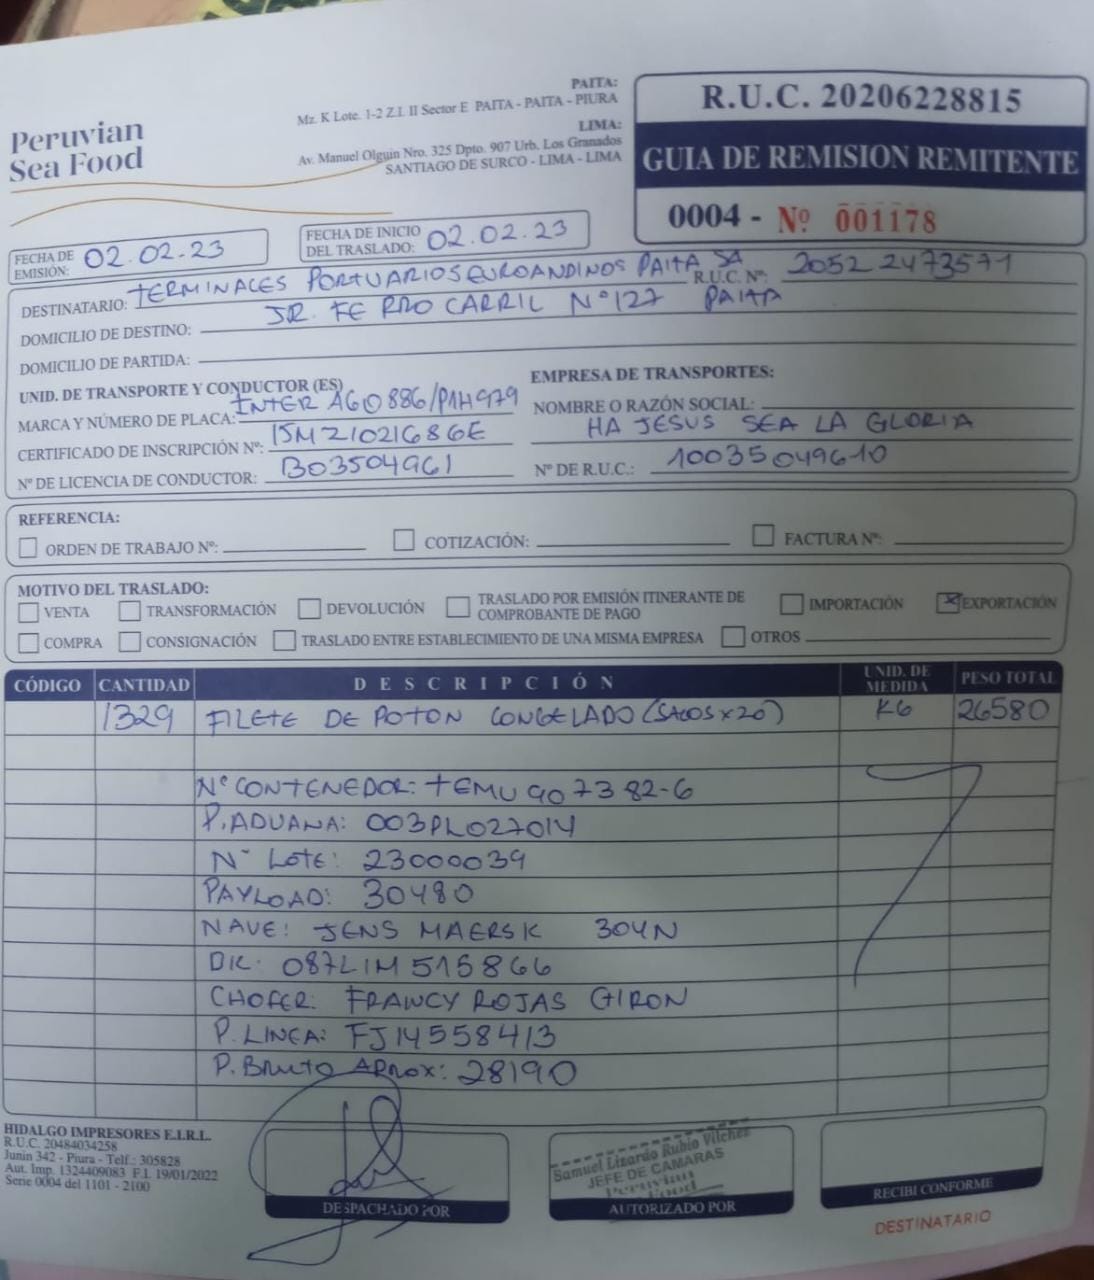 Peruvian
Sea Food
PAITA:
Mz. K Lote. 1-2 Z.I. II Sector E PAITA - PAITA - PIURA
LIMA:
Av. Manuel Olguin Nro. 325 Dpto. 907 Urb. Los Granados
SANTIAGO DE SURCO - LIMA - LIMA
R.U.C. 20206228815
GUIA DE REMISION REMITENTE
0004 - Nº 001178
FECHA DE EMISIÓN: 02.02.23
FECHA DE INICIO DEL TRASLADO: 02.02.23
DESTINATARIO: TERMINALES PORTUARIOS EUROANDINOS PAITA SA R.U.C. Nº: 20522473571
DOMICILIO DE DESTINO: JR. FERROCARRIL Nº127 PAITA
DOMICILIO DE PARTIDA:
UNID. DE TRANSPORTE Y CONDUCTOR (ES)
MARCA Y NÚMERO DE PLACA: INTER AGO886/P1H979
CERTIFICADO DE INSCRIPCIÓN Nº: 15M21021686E
Nº DE LICENCIA DE CONDUCTOR: B03504961
EMPRESA DE TRANSPORTES:
NOMBRE O RAZÓN SOCIAL:
HA JESUS SEA LA GLORIA
Nº DE R.U.C.: 10035049610
REFERENCIA:
ORDEN DE TRABAJO Nº: COTIZACIÓN: FACTURA Nº:
MOTIVO DEL TRASLADO:
VENTA TRANSFORMACIÓN DEVOLUCIÓN TRASLADO POR EMISIÓN ITINERANTE DE COMPROBANTE DE PAGO IMPORTACIÓN EXPORTACIÓN
COMPRA CONSIGNACIÓN TRASLADO ENTRE ESTABLECIMIENTO DE UNA MISMA EMPRESA OTROS
CÓDIGO CANTIDAD DESCRIPCIÓN UNID. DE MEDIDA PESO TOTAL
1329 FILETE DE POTON CONGELADO (SACOS x 20) KG 26580
Nº CONTENEDOR: TEMU 907382-6
P. ADUANA: 003PL027014
Nº LOTE: 23000039
PAYLOAD: 30480
NAVE: JENS MAERSK 304N
DK: 087LIM515866
CHOFER: FRANCY ROJAS GIRON
P. LINEA: FJ14558413
P. BRUTO APROX: 28190
HIDALGO IMPRESORES E.I.R.L.
R.U.C. 20484034258
Junin 342 - Piura - Telf.: 305828
Aut. Imp. 1324409083 F.I. 19/01/2022
Serie 0004 del 1101 - 2100
DESPACHADO POR
Samuel Lizardo Rubio Vilchez
JEFE DE CAMARAS
Peruvian
Food
AUTORIZADO POR
RECIBI CONFORME
DESTINATARIO